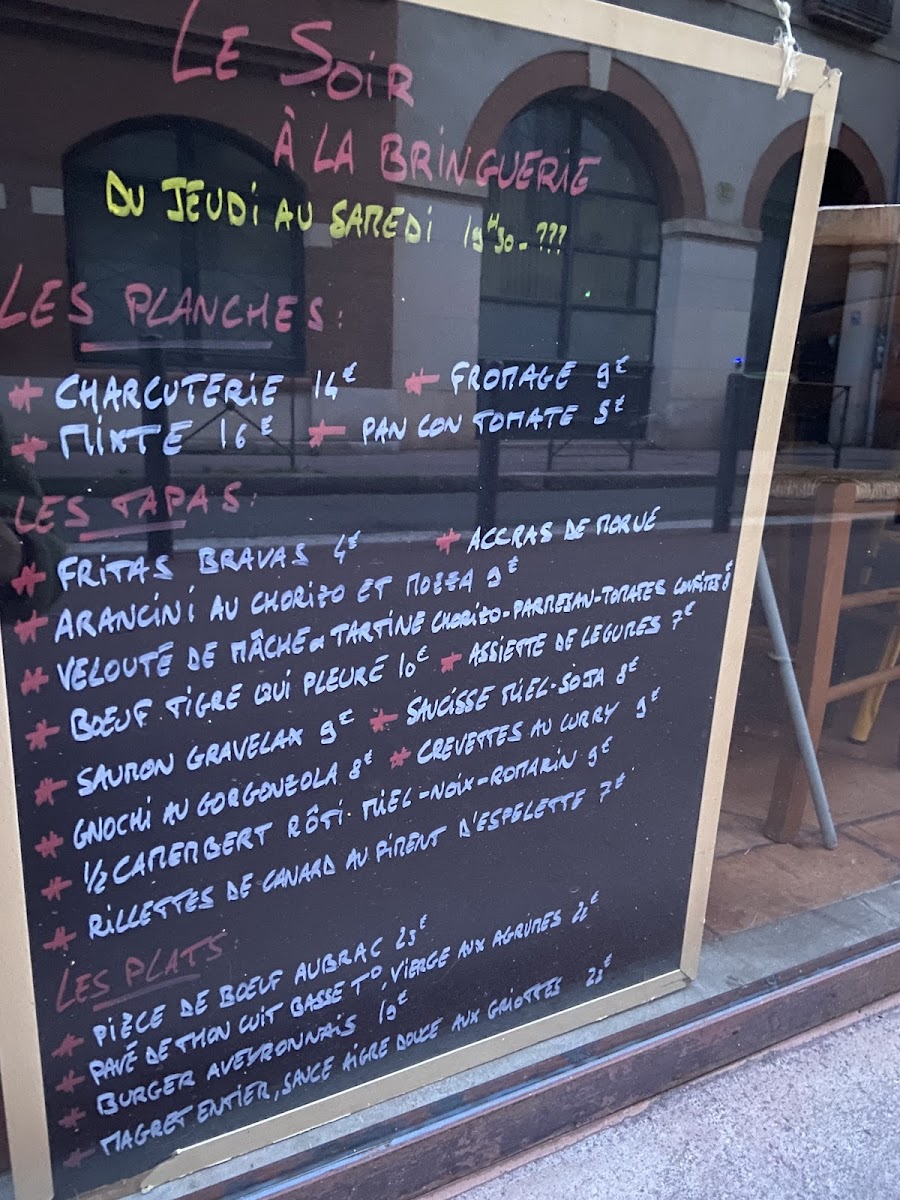 LE SOIR
À LA BRINGUERIE
DU JEUDI AU SAMEDI 19H30- ???
LES PLANCHES:
* CHARCUTERIE 14€ * FROMAGE 9€
* MIXTE 16€ * PAN CON TOMATE 5€
LES TAPAS:
* FRITAS BRAVAS 4€ * ACCRAS DE MORUE
* ARANCINI AU CHORIZO ET MOZZA 9€
* VELOUTÉ DE MÂCHE & TARTINE CHORIZO-PARMESAN-TOMATES CONFITES 8€
* BŒUF TIGRE QUI PLEURE 10€ * ASSIETTE DE LEGUMES 7€
* SAUMON GRAVELAX 9€ * SAUCISSE MIEL-SOJA 8€
* GNOCHI AU GORGONZOLA 8€ * CREVETTES AU CURRY 9€
* 1/2 CAMEMBERT RÔTI MIEL-NOIX-ROMARIN 9€
* RILLETTES DE CANARD AU PIMENT D'ESPELETTE 7€
LES PLATS:
* PIÈCE DE BŒUF AUBRAC 23€
* PAVÉ DE THON CUIT BASSE T°, VIERGE AUX AGRUMES 22€
* BURGER AVEYRONNAIS 19€
* MAGRET ENTIER, SAUCE AIGRE DOUCE AUX GRIOTTES 23€